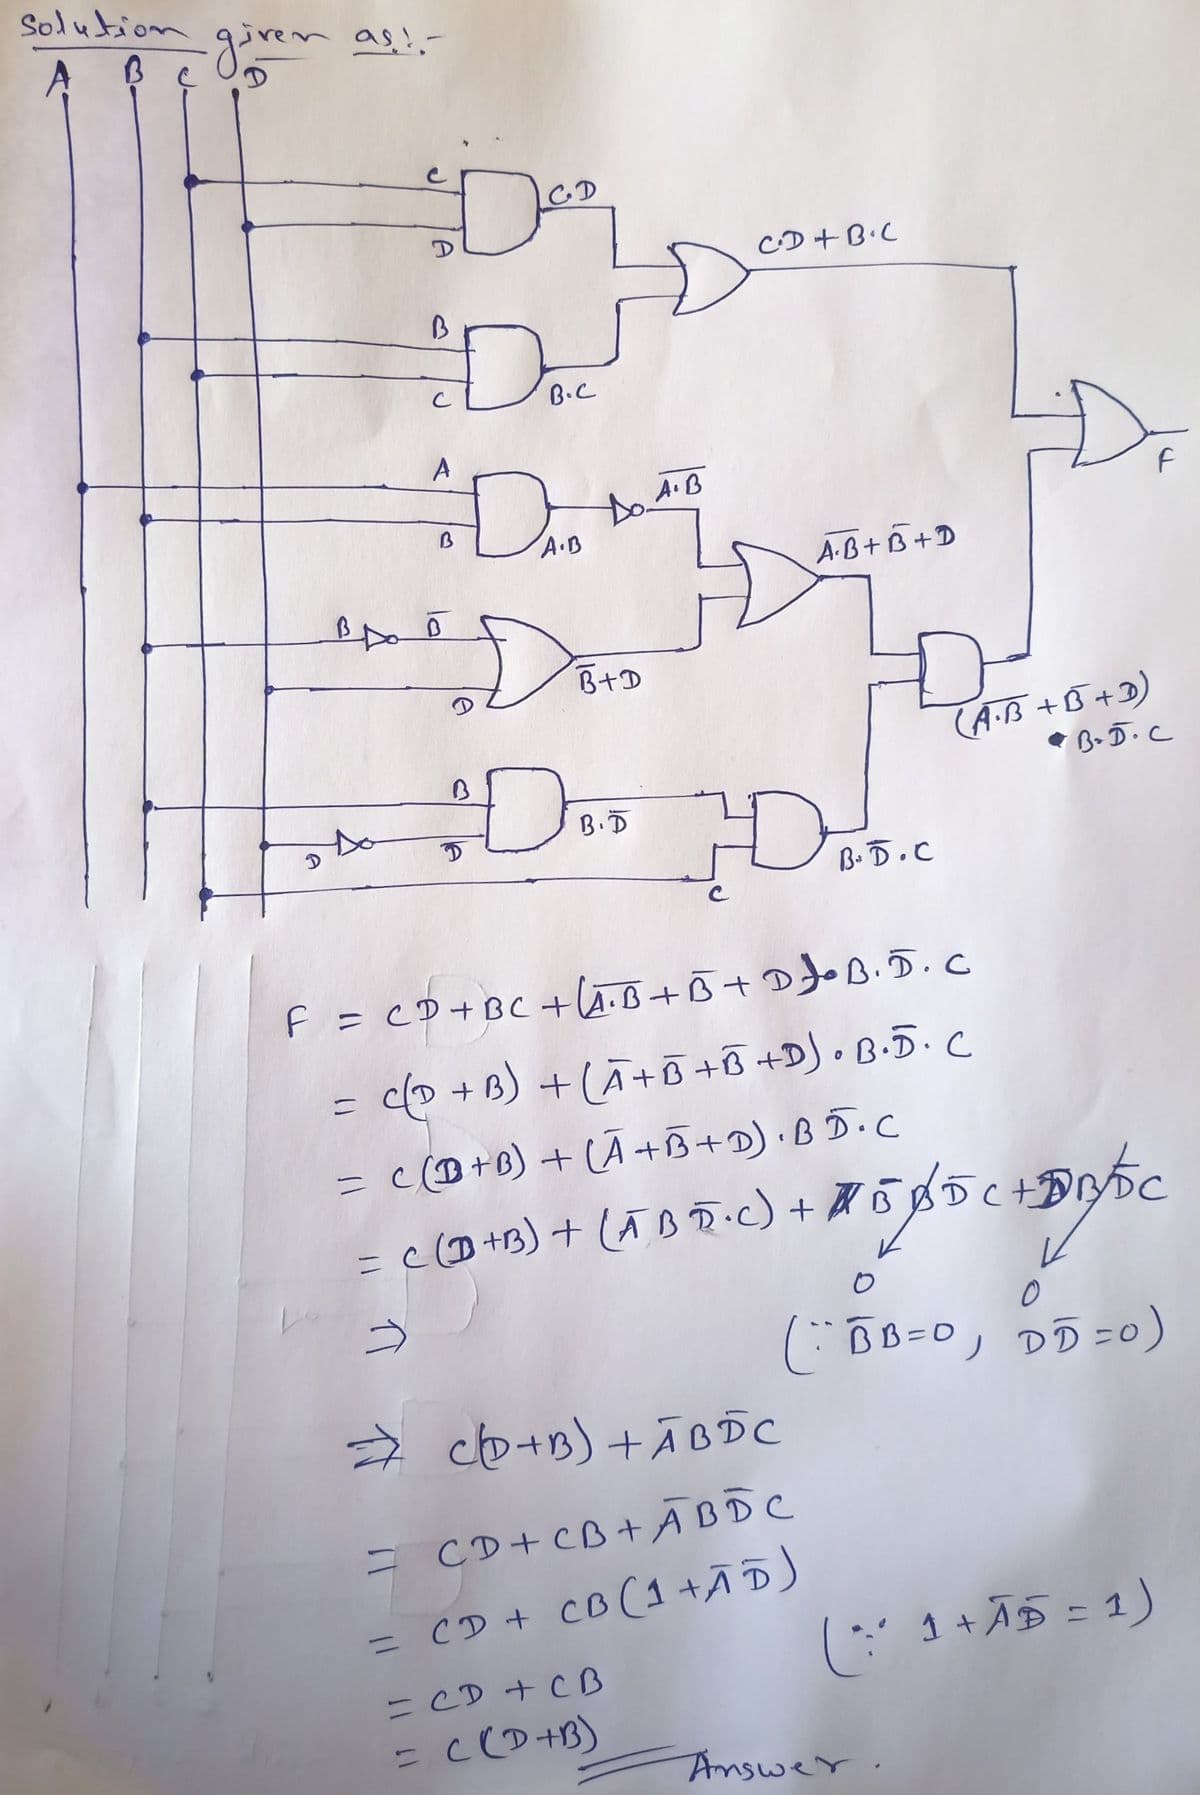 Solution given as:-
A B C D
C
C.D
D
C.D + B.C
B
B.C
C
F
A
A̅.̅B̅
B
A.B
A̅.̅B̅ + B̅ + D
B B̅
B̅+D
D
(A̅.̅B̅ + B̅ + D)
• B.D̅.C
B
B.D̅
D D̅
B.D̅.C
C
F = CD + BC + (A̅.̅B̅ + B̅ + D). B.D̅.C
= C(D + B) + (A̅ + B̅ + B̅ + D). B.D̅.C
= C(D+B) + (A̅ + B̅ + D). B D̅.C
= C(D+B) + (A̅ B D̅.C) + B̅ B D̅ C + D B D̅ C
0 0
⇒ (∵ B̅B=0, DD̅=0)
⇒ C(D+B) + A̅BD̅C
= CD + CB + A̅BD̅C
= CD + CB(1 + A̅D̅)
(∵ 1 + A̅D̅ = 1)
= CD + CB
= C(D+B)
Answer.